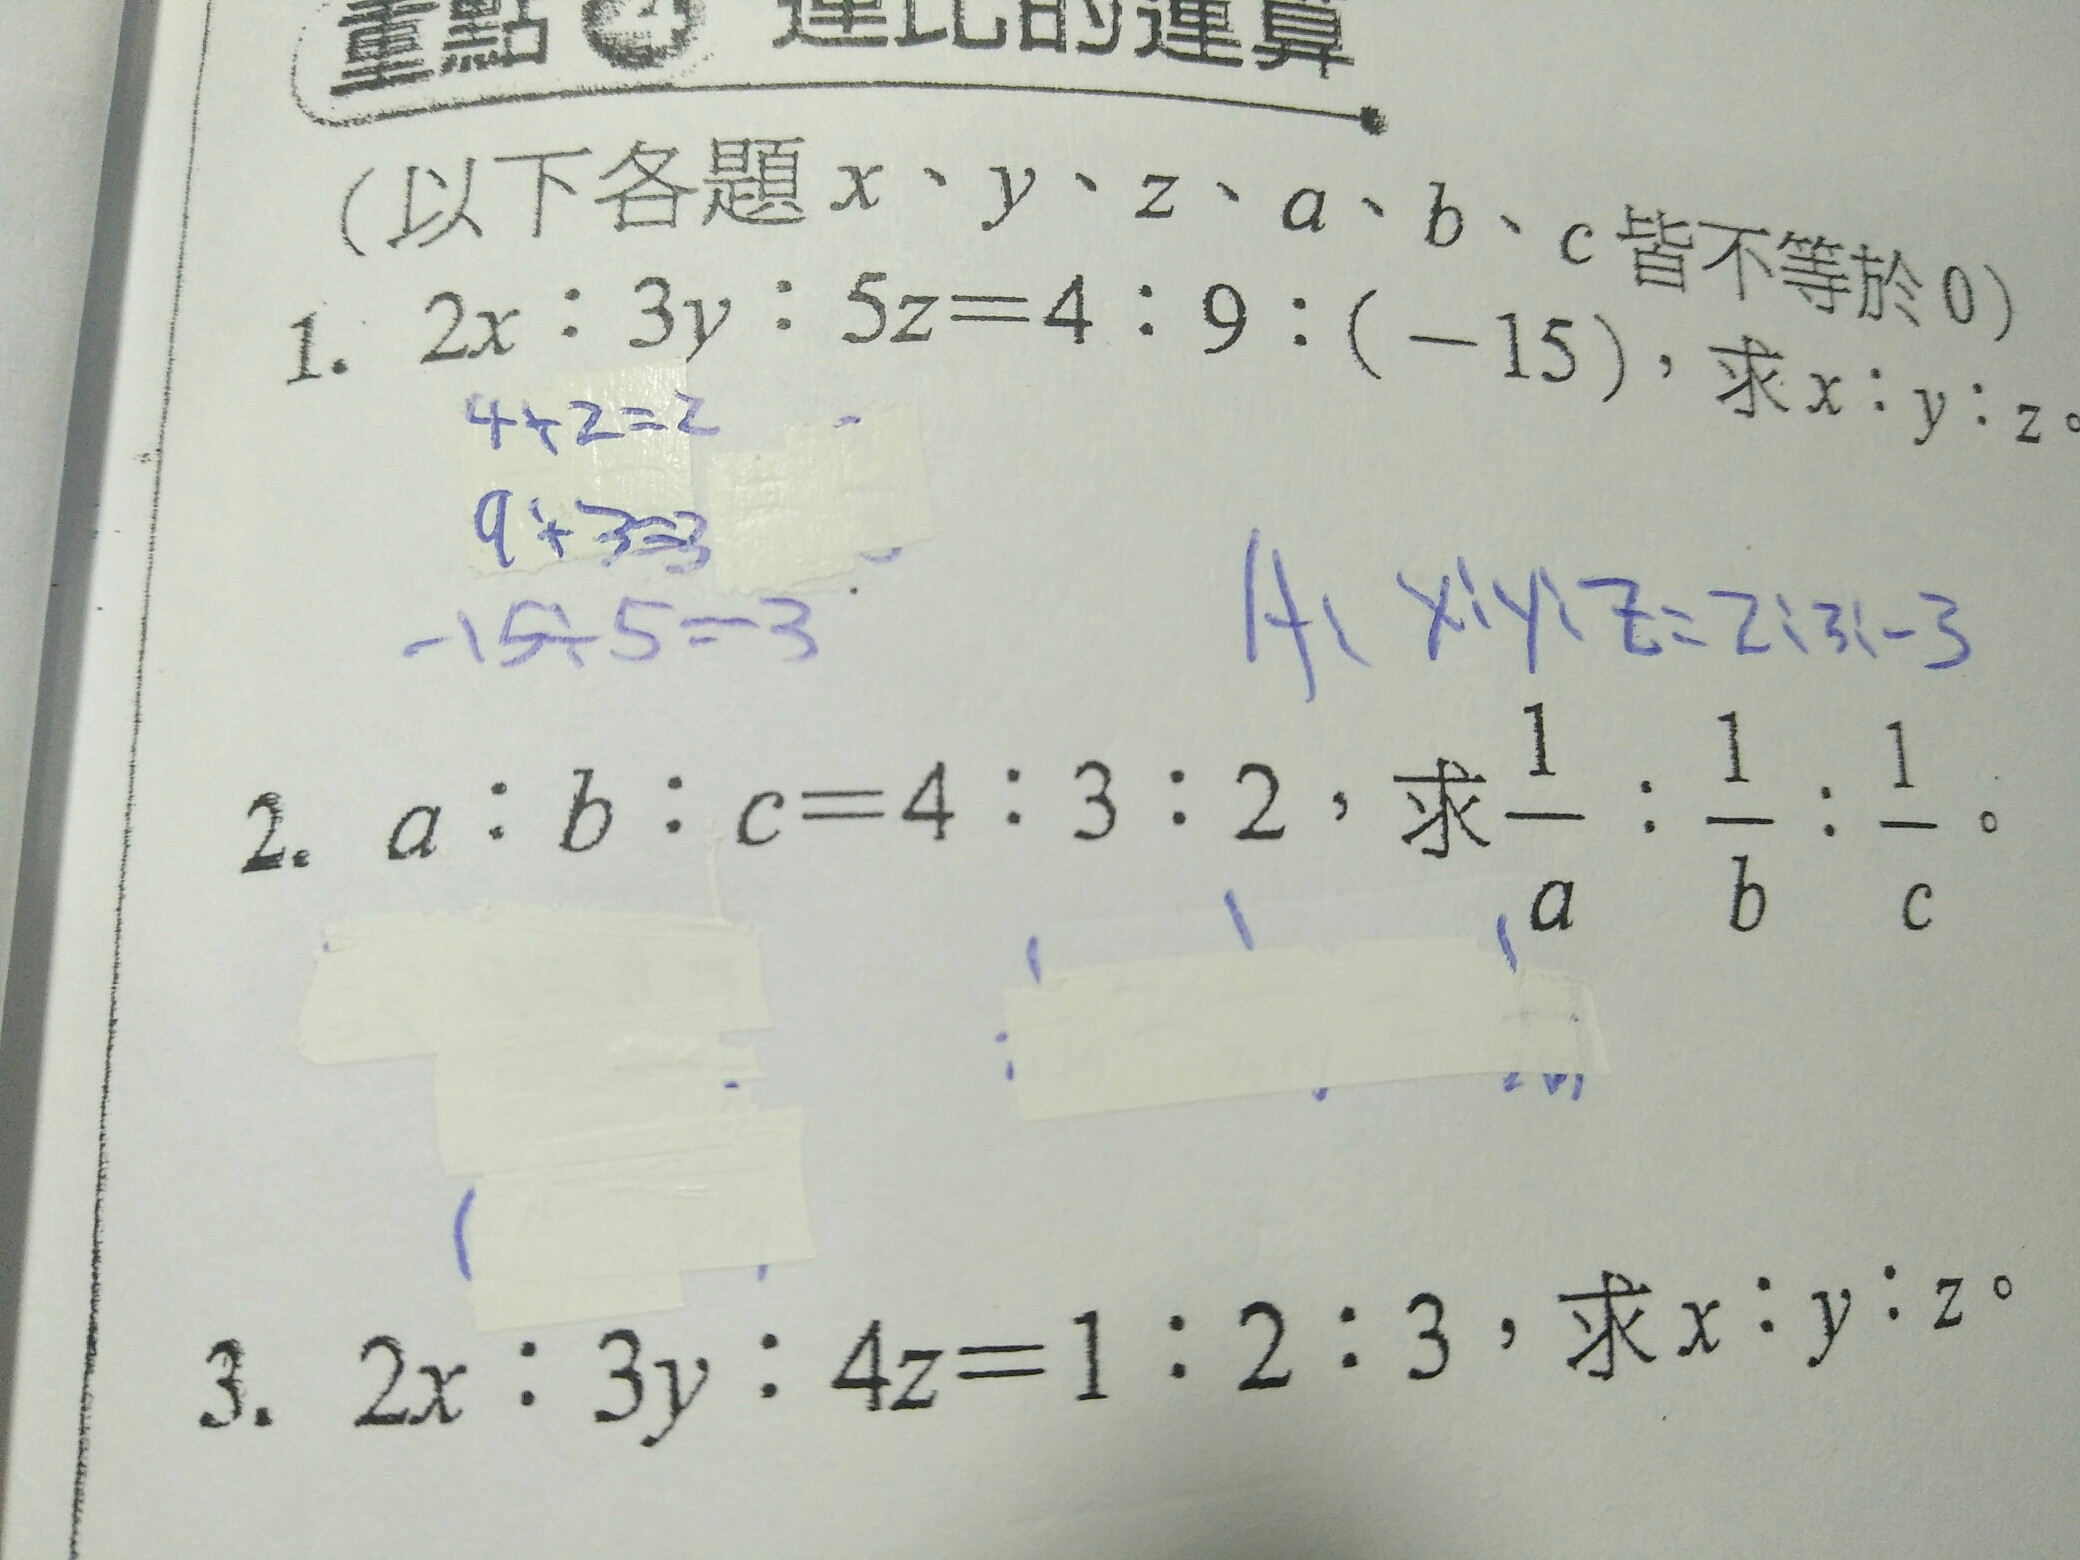 重點 4 連比的運算
(以下各題 x、y、z、a、b、c皆不等於0)
1. 2x：3y：5z=4：9：(-15)，求x：y：z。
4÷2=2
9÷3=3
-15÷5=-3
A: x:y:z=2:3:-3
2. a：b：c=4：3：2，求1/a：1/b：1/c。
3. 2x：3y：4z=1：2：3，求x：y：z。